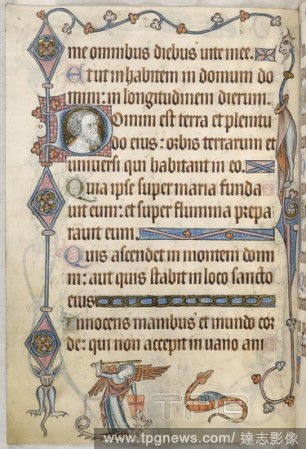 me omnibus diebus vite mee.
Et ut inhabitem in domum do
mini: in longitudinem dierum.
Domini est terra et plenitu
do eius: orbis terrarum et
universi qui habitant in eo.
Quia ipse super maria funda
uit eum: et super flumina prepa
rauit eum.
Quis ascendet in montem domi
ni: aut quis stabit in loco sancto
eius
Innocens manibus et mundo cor
de: qui non accepit in uano ani
TPG
www.tpgnews.com/達志影像